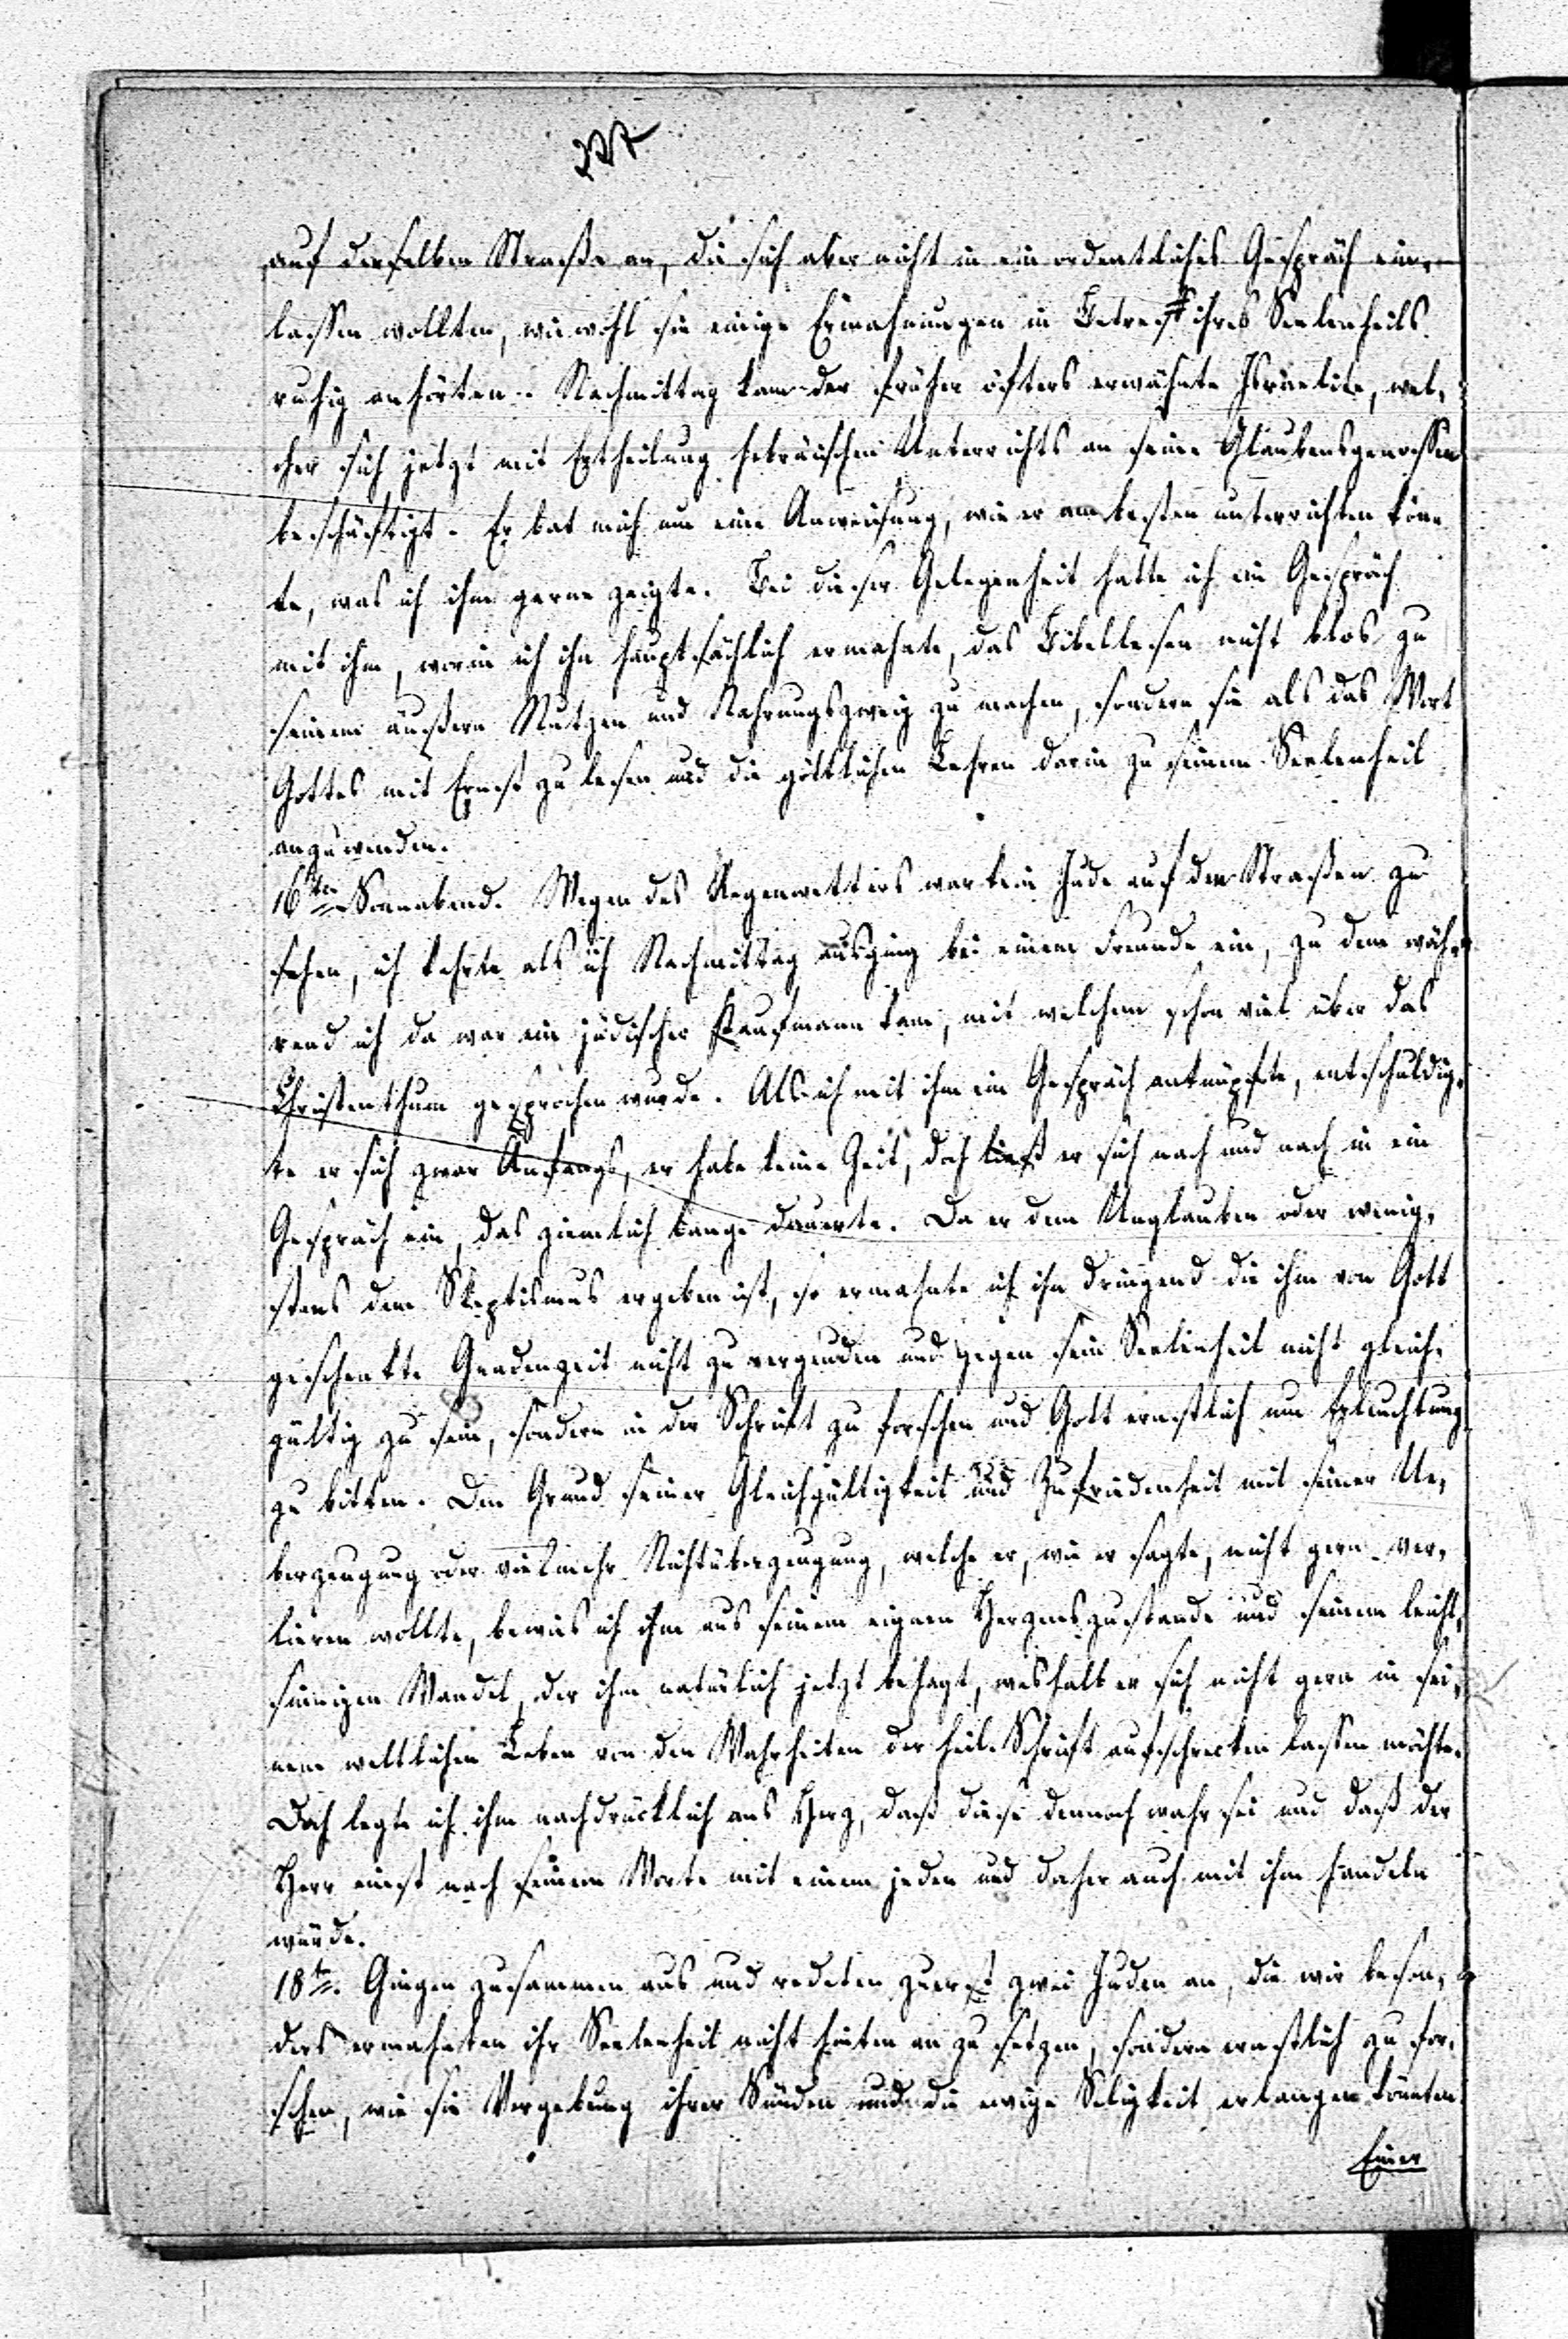 auf derselben Straße an, die sich aber nicht in ein ordentliches Gespräch ein-
lassen wollten, wiewohl sie einige Ermahnungen in Betreff ihres Seelenheils
ruhig anhörten. Nachmittag kam der früher öfters erwähnte Israelite, wel-
cher sich jetzt mit Ertheilung hebräischen Unterrichts an seine Glaubensgenossen
beschäftigt. Er bat mich um eine Anweisung, wie er am besten unterrichten könn
te, was ich ihm gerne zeigte. Bei dieser Gelegenheit hatte ich ein Gespräch
mit ihm, worin ich ihn hauptsächlich ermahnte, das Bibellesen nicht blos zu
seinem äußern Nutzen und Nahrungszweig zu machen, sondern sie als das Wort
Gottes mit Ernst zu lesen und die göttlichen Lehren darin zu seinem Seelenheil
anzuwenden.
16ten Sonnabend. Wegen des Regenwetters war kein Jude auf den Straßen zu
sehen, ich kehrte als ich Nachmittag ausging bei einem Freunde ein, zu dem wäh-
rend ich da war ein jüdischer Kaufmann kam, mit welchem schon viel über das
Christenthum gesprochen wurde. Als ich mit ihm ein Gespräch anknüpfte, entschuldig-
te er sich zwar Anfangs, er habe keine Zeit, doch ließ er sich nach und nach in ein
Gespräch ein, das ziemlich lange dauerte. Da er dem Unglauben oder wenig-
stens dem Skeptismus ergeben ist, so ermahnte ich ihn dringend die ihm von Gott
geschenkte Gnadenzeit nicht zu vergeuden und gegen sein Seelenheil nicht gleich-
gültig zu sein, sondern in der Schrift zu forschen und Gott ernstlich um Erleuchtung
zu bitten. Den Grund seiner Gleichgültigkeit und Zufriedenheit mit seiner Ue-
berzeugung oder vielmehr Nichtüberzeugung, welche er, wie er sagte, nicht gern ver-
lieren wollte, bewies ich ihm aus seinem eignen Herzenszustande und seinem leicht-
sinnigen Wandel, der ihm natürlich jetzt behagt, weshalb er sich nicht gern in sei-
nem weltlichen Leben von den Wahrheiten der heil. Schrift aufschrecken lassen möchte.
Doch legte ich ihm nachdrücklich ans Herz, daß diese dennoch wahr sei und daß der
Herr einst nach seinem Worte mit einem jeden und daher auch mit ihm handeln
würde.
18te. Gingen zusammen aus und redeten zuerst zwei Juden an, die wir beson-
ders ermahnten ihr Seelenheil nicht hinten an zu setzen, sondern ernstlich zu for-
schen, wie sie Vergebung ihrer Sünden und die ewige Seligkeit erlangen könnten.
Einer